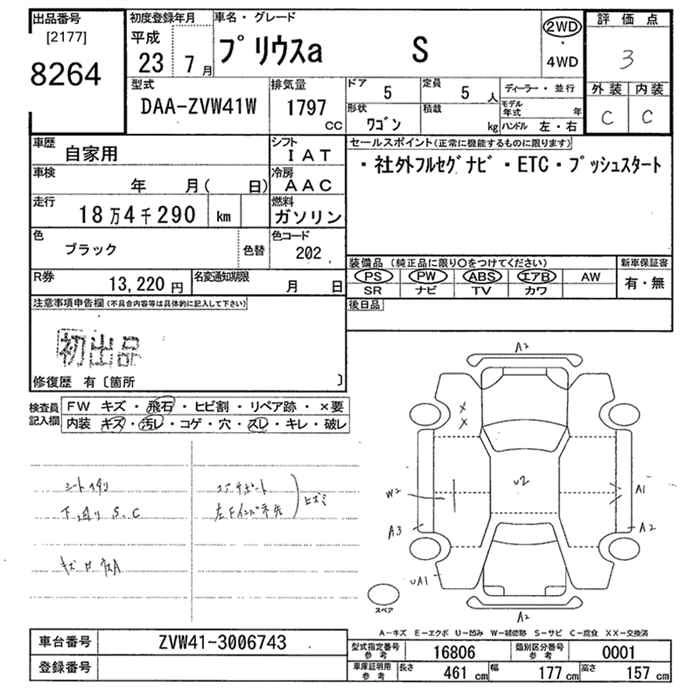 出品番号 [2177] 8264
初度登録年月 平成 23年 7月
車名・グレード プリウスa S
2WD・4WD
評価点 3
外装 C 内装 C
型式 DAA-ZVW41W
排気量 1797 CC
ドア 5 定員 5人
形状 ワゴン 積載 kg
ディーラー・並行
モデル年式 年
ハンドル 左・右
車歴 自家用
シフト IAT
車検 年 月( 日)
冷房 AAC
走行 18万4千290 km
燃料 ガソリン
色 ブラック 色替
色コード 202
R券 13,220円
名変通知期限 月 日
セールスポイント(正常に機能するものに限ります)
・社外フルセグナビ・ETC・プッシュスタート
装備品(純正品に限り○をつけてください)
PS PW ABS エアB AW
SR ナビ TV カワ
新車保証書 有・無
後日品
注意事項申告欄(不具合内容等は具体的に記入して下さい)
初出品
修復歴 有〔箇所 〕
検査員記入欄
FW キズ・飛石・ヒビ割・リペア跡・×要
内装 キズ・汚レ・コゲ・穴・スレ・キレ・破レ
S.C
ヒズミ
A2
U2
W2
A1
A3
A2
UA1
A2
スペア
A-キズ E-エクボ U-凹み W-補修跡 S-サビ C-腐食 XX-交換済
車台番号 ZVW41-3006743
登録番号
型式指定番号参考 16806 類別区分番号参考 0001
車庫証明用参考 長さ 461cm 幅 177cm 高さ 157cm